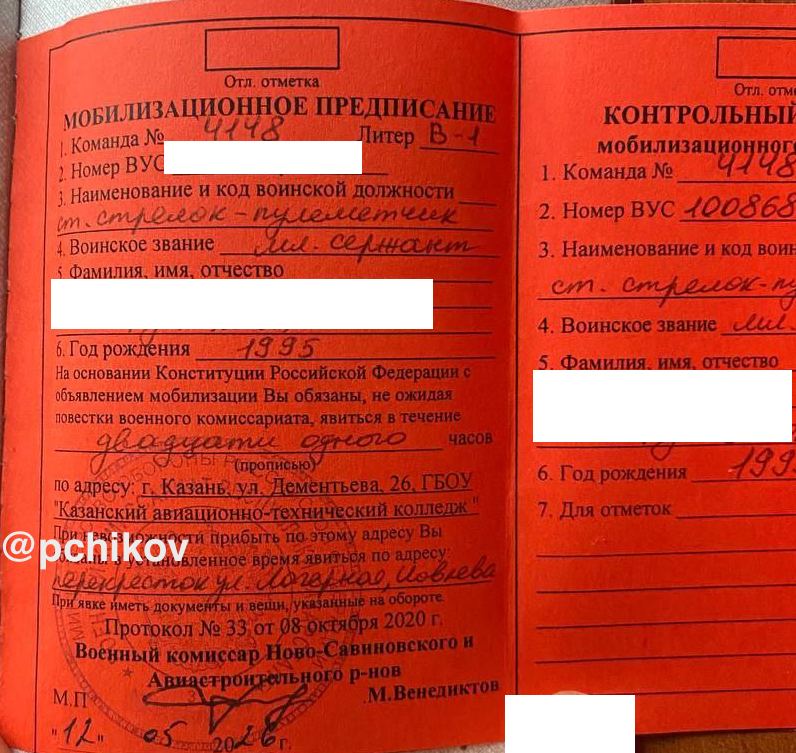 Отл. отметка
МОБИЛИЗАЦИОННОЕ ПРЕДПИСАНИЕ
1. Команда № 4148 Литер В-1
2. Номер ВУС
3. Наименование и код воинской должности
ст. стрелок-пулеметчик
4. Воинское звание мл. сержант
5. Фамилия, имя, отчество
6. Год рождения 1995
На основании Конституции Российской Федерации с
объявлением мобилизации Вы обязаны, не ожидая
повестки военного комиссариата, явиться в течение
двадцати одного часов
(прописью)
по адресу: г. Казань, ул. Дементьева, 26, ГБОУ
"Казанский авиационно-технический колледж"
При невозможности прибыть по этому адресу Вы
в установленное время явиться по адресу:
перекресток ул. Лагерная,
При явке иметь документы и вещи, указанные на обороте.
Протокол № 33 от 08 октября 2020 г.
Военный комиссар Ново-Савиновского и
Авиастроительного р-нов
М.П М.Венедиктов
"12" 05 2026г.
@pchikov
Отл. отм
КОНТРОЛЬНЫЙ
мобилизационного
1. Команда № 4148
2. Номер ВУС 100868
3. Наименование и код воин
ст. стрелок-пу
4. Воинское звание мл.
5. Фамилия, имя, отчество
6. Год рождения 199
7. Для отметок